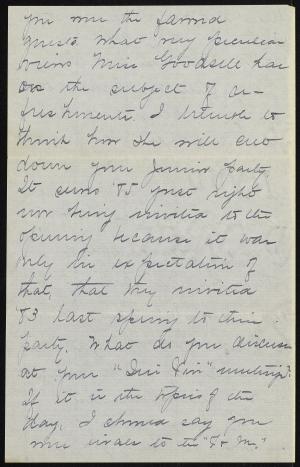 you were the favored
guests. What very peculiar
views Miss Goodsell has
on the subject of re-
freshments. I tremble to
think how she will cut
down your Junior party.
It serves '85 just right
not being invited to the
opening because it was
only in expectation of
that, that they invited
'83 last spring to their
party. What do you discuss
at your meetings?
If it is the topics of the
day, I should say you
were to the